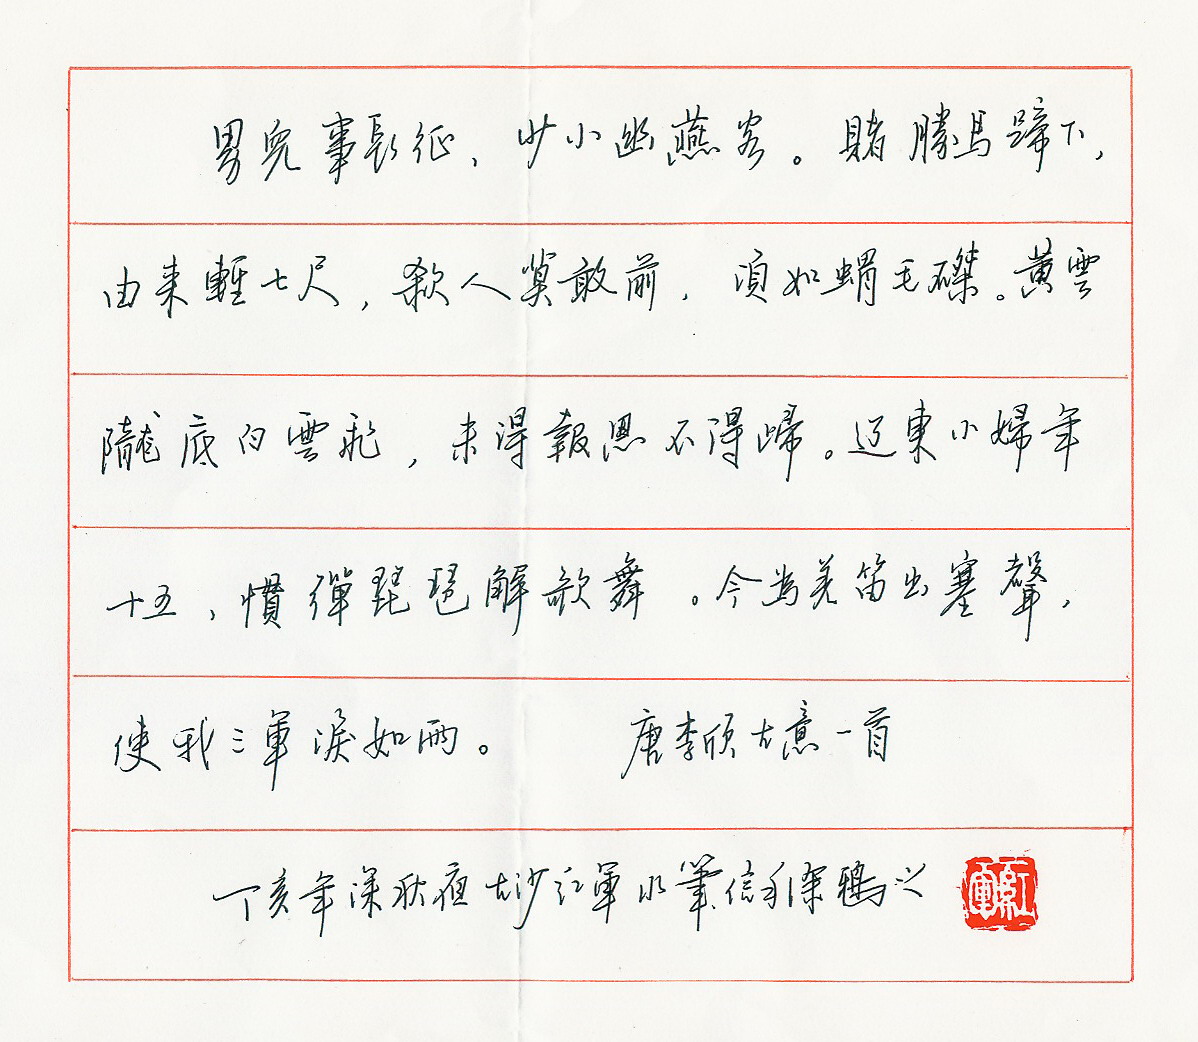 男兒事長征，少小幽燕客。賭勝馬蹄下，
由來輕七尺，殺人莫敢前，須如蝟毛磔。黃雲
隴底白雲飛，未得報恩不得歸。遼東小婦年
十五，慣彈琵琶解歌舞。今為羌笛出塞聲，
使我三軍淚如雨。 唐李頎古意一首
丁亥年深秋夜古沙江軍水筆信手塗鴉之
紅軍